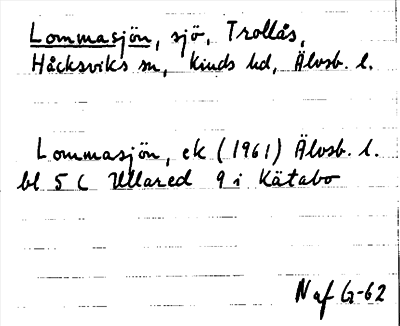 Lommasjön, sjö, Trollås,
Håcksviks sn, Kinds hd, Älvsb. l.
Lommasjön, ek (1961) Älvsb. l.
bl 5 C Ullared 9 i Kätabo
N af G-62